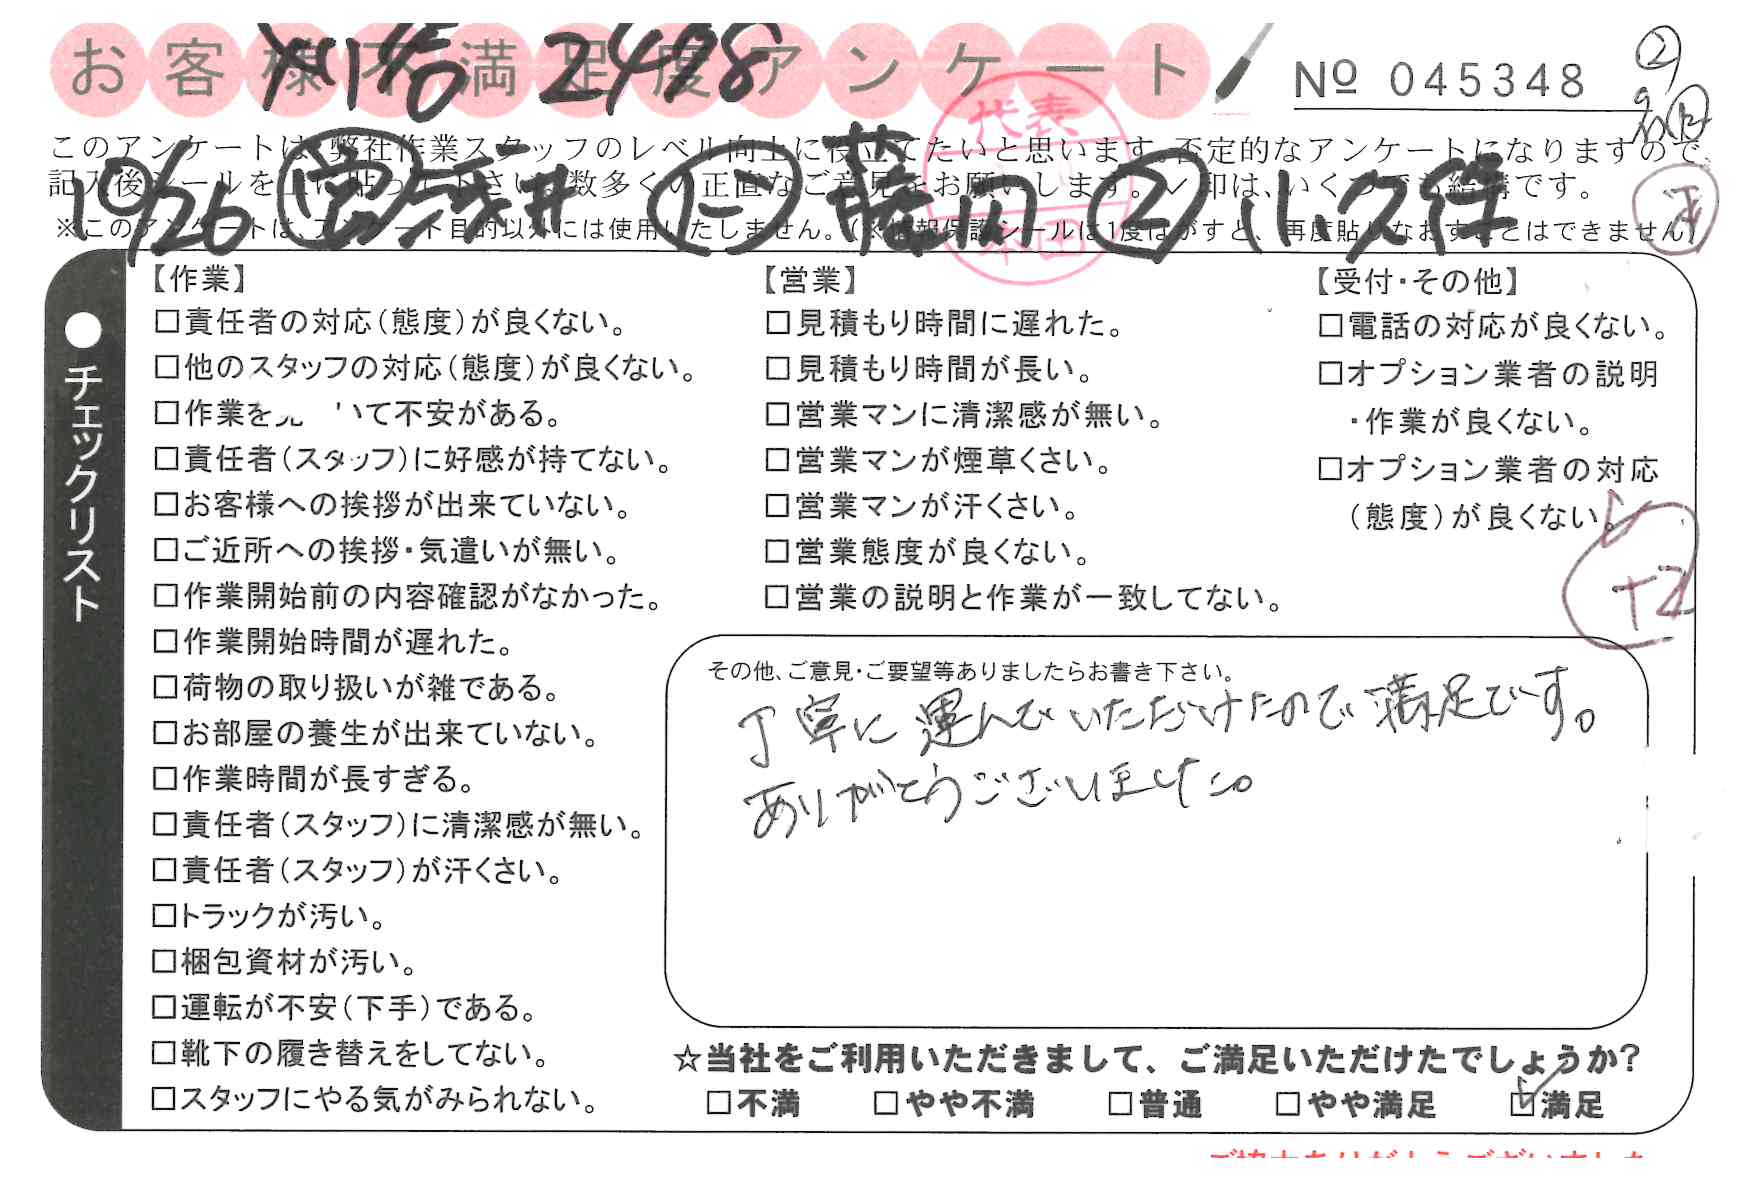 お客様不満足度アンケート
2498
№ 045348
②
このアンケートは、弊社作業スタッフのレベル向上に役立てたいと思います。否定的なアンケートになりますので、
記入後シールを上に貼って下さい。数多くの正直なご意見をお願いします。✓印は、いくつでも結構です。
※このアンケートは、アンケート目的以外には使用いたしません。(※情報保護シールは1度はがすと、再度貼りなおすことはできません)
10/26 藤田 ② 小久保
代表
本田
●チェックリスト
【作業】
□責任者の対応(態度)が良くない。
□他のスタッフの対応(態度)が良くない。
□作業を いて不安がある。
□責任者(スタッフ)に好感が持てない。
□お客様への挨拶が出来ていない。
□ご近所への挨拶・気遣いが無い。
□作業開始前の内容確認がなかった。
□作業開始時間が遅れた。
□荷物の取り扱いが雑である。
□お部屋の養生が出来ていない。
□作業時間が長すぎる。
□責任者(スタッフ)に清潔感が無い。
□責任者(スタッフ)が汗くさい。
□トラックが汚い。
□梱包資材が汚い。
□運転が不安(下手)である。
□靴下の履き替えをしてない。
□スタッフにやる気がみられない。
【営業】
□見積もり時間に遅れた。
□見積もり時間が長い。
□営業マンに清潔感が無い。
□営業マンが煙草くさい。
□営業マンが汗くさい。
□営業態度が良くない。
□営業の説明と作業が一致してない。
【受付・その他】
□電話の対応が良くない。
□オプション業者の説明
・作業が良くない。
□オプション業者の対応
(態度)が良くない。
+2
その他、ご意見・ご要望等ありましたらお書き下さい。
丁寧に運んでいただけたので満足です。
ありがとうございました。
☆当社をご利用いただきまして、ご満足いただけたでしょうか?
□不満 □やや不満 □普通 □やや満足 ☑満足
ご協力ありがとうございました